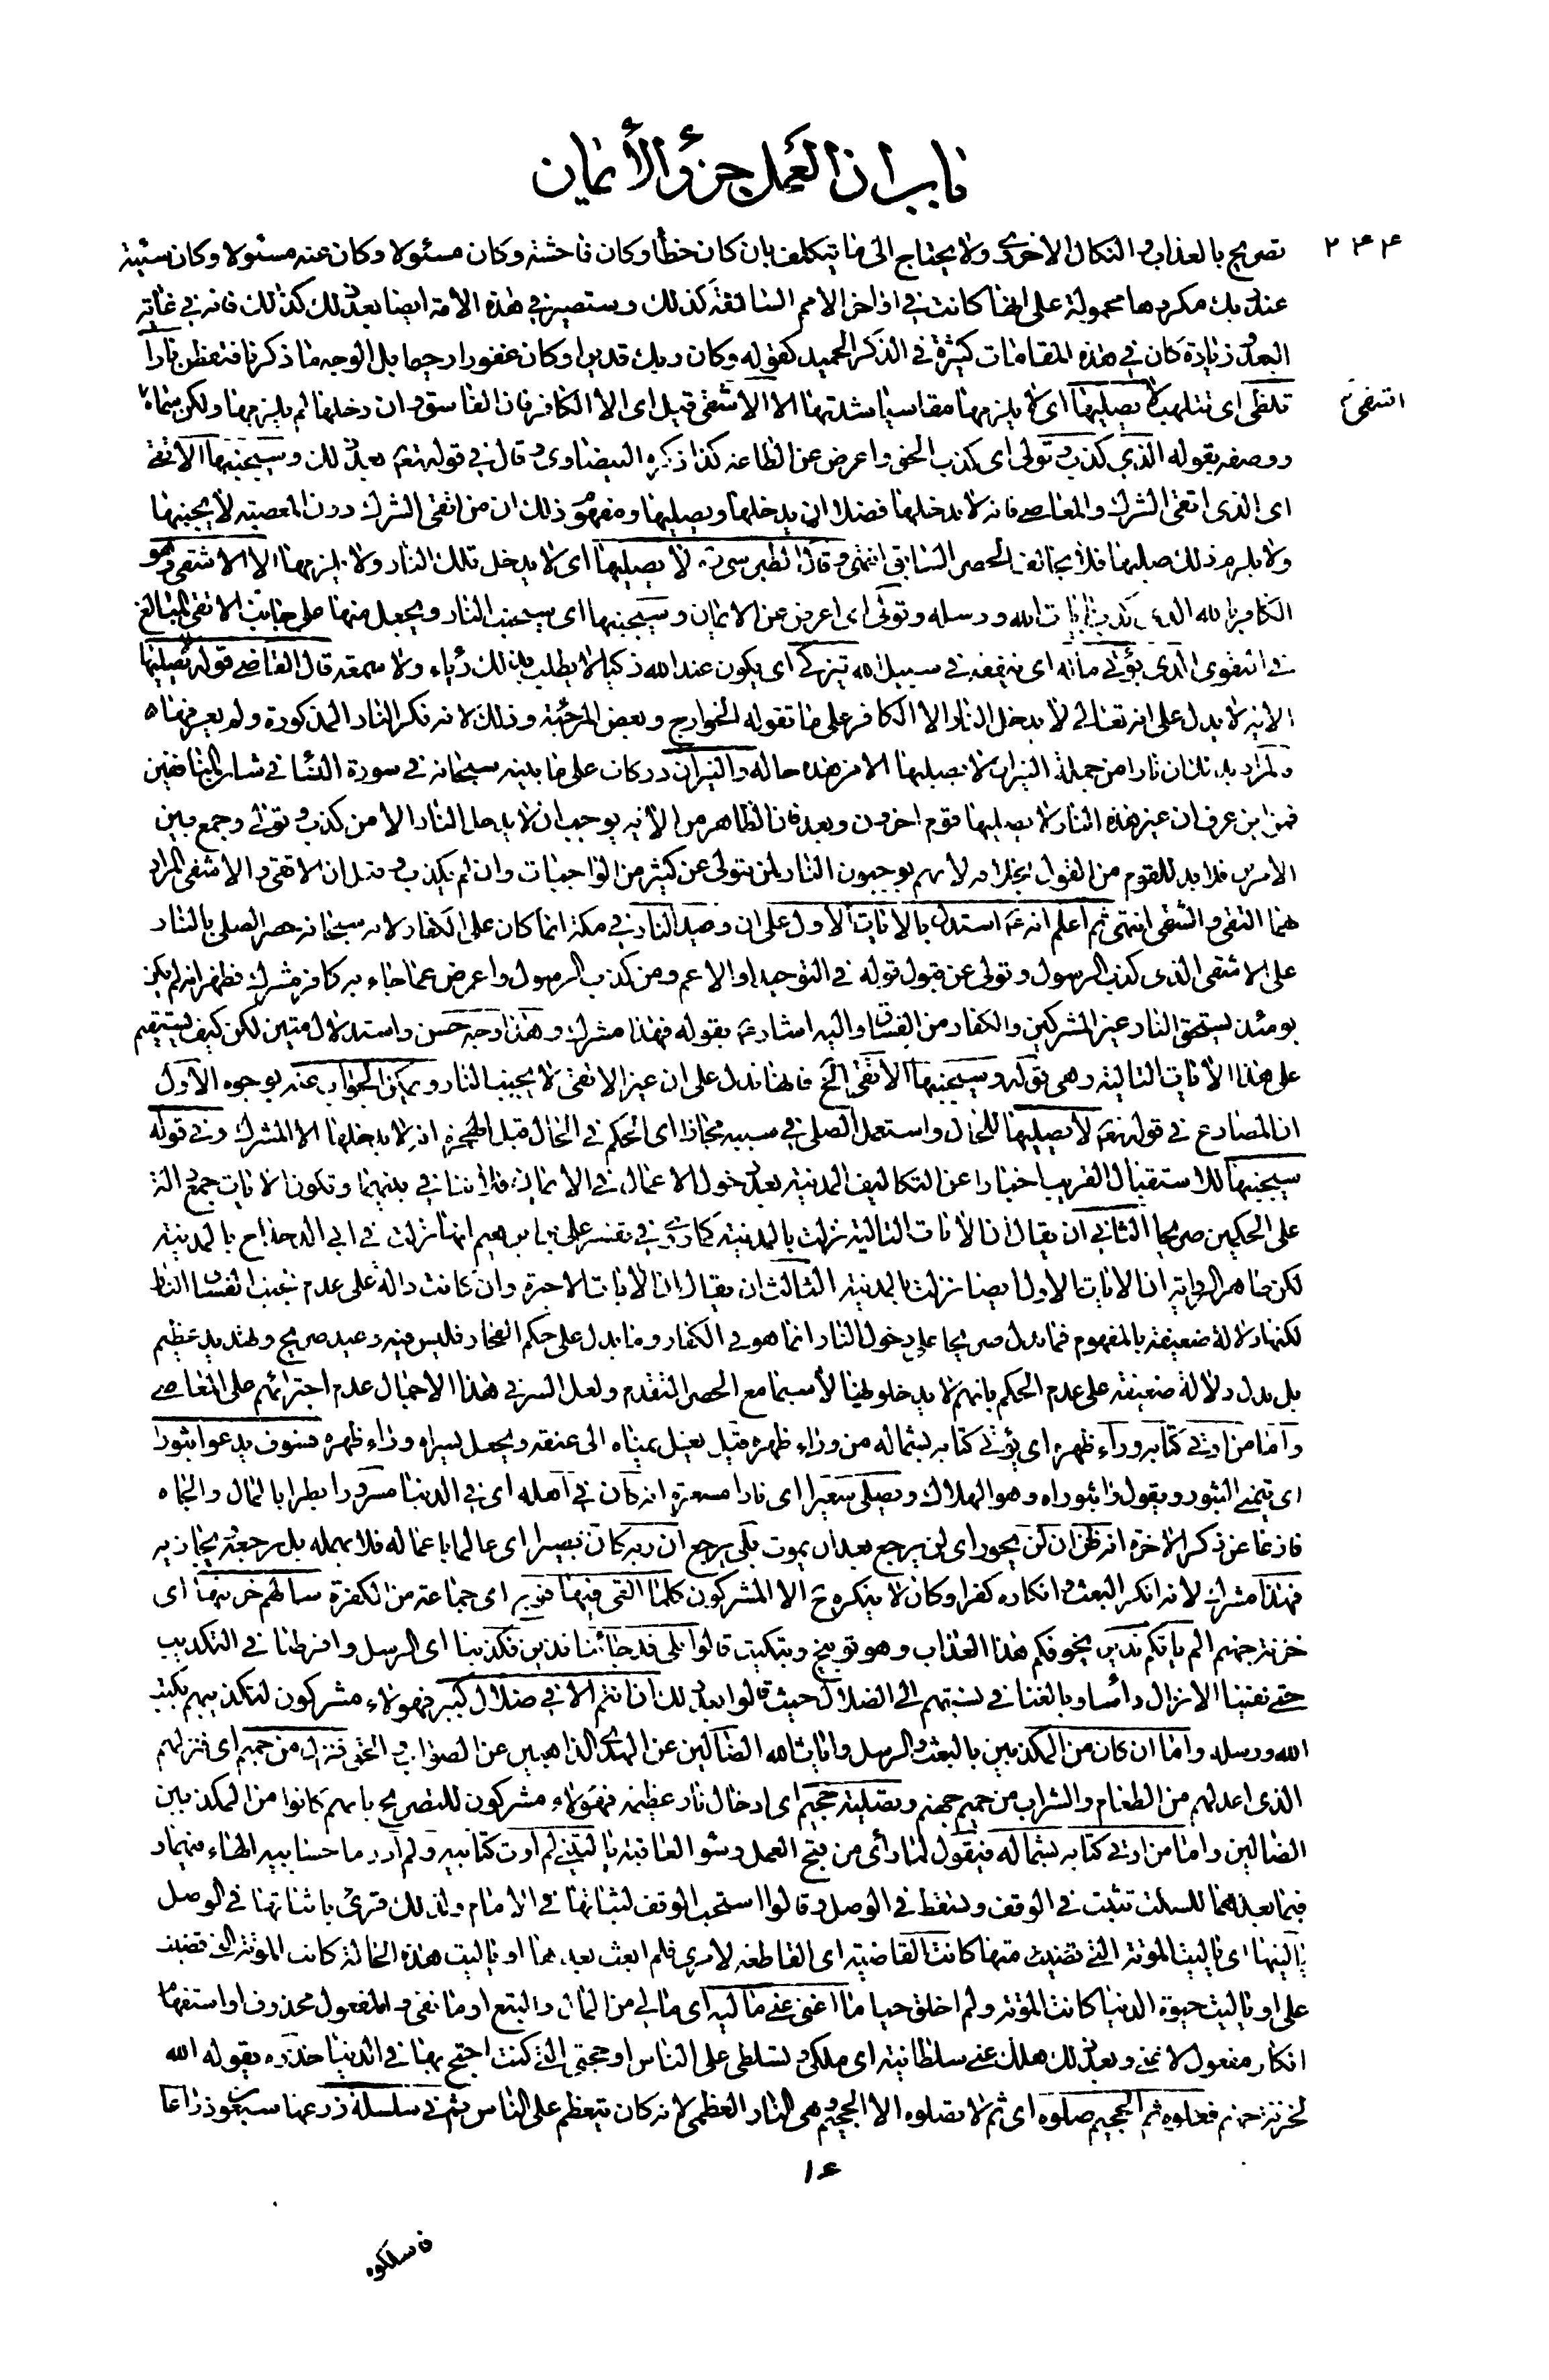 باب ان العمل جزؤ الأيمان
٢٤٤
تصريح بالعذاب والنكال الاخروى ولا يحتاج الى ما يتكلف بان كان خطأ وكان فاحشة وكان مسئولا وكان عنه مسئولا وكان سيئة
عند ربك مكروها محمولة على انها كانت فى اواخر الامم السالفة كذلك وستصير فى هذه الامة ايضا بعد ذلك كذلك فانه فى غاية
البعد زيادة كان فى هذه المقامات كثيرة فى الذكر الحميد كقوله وكان ربك قديرا وكان غفورا رحيما بل الوجه ما ذكرنا فتفطن نارا
تلظى اى تتلهب لا يصليها اى لا يلزمها مقاسيا شدتها الا الأشقى قيل اى الا الكافر فان الفاسق وان دخلها لم يلزمها ولكن سماه
اشقى
ووصفه بقوله الذى كذب وتولى اى كذب الحق واعرض عن الطاعة كذا ذكره البيضاوى وقال فى قوله تعم بعد ذلك وسيجنبها الأتقى
اى الذى اتقى الشرك والمعاصى فانه لا يدخلها فضلا ان يدخلها ويصليها ومفهوم ذلك ان من اتقى الشرك دون المعصية لا يجنبها
ولا يلزم ذلك صليها فلا يخالف الحصر السابق انتهى وقال الطبرسى ره لا يصليها اى لا يدخل تلك النار ولا يلزمها الا الاشقى وهو
الكافر بالله الذى كذب بايات الله ورسله وتولى اى اعرض عن الايمان وسيجنبها اى سيجنب النار ويجعل منها على جانب الاتقى المبالغ
فى التقوى الذى يؤتى ماله اى ينفقه فى سبيل الله يتزكى اى يكون عند الله زكيا لا يطلب بذلك رئاء ولا سمعة قال القاضى قوله لا يصليها
الاية لا يدل على انه تعالى لا يدخل النار الا الكافر على ما تقوله الخوارج وبعض المرجئة وذلك لانه نكر النار المذكورة ولم يعرفها
والمراد بذلك ان نارا من جملة النيران لا يصليها الا من هذه حاله والنيران دركات على ما بينه سبحانه فى سورة النساء فى شان المنافقين
فمن اين عرف ان غير هذه النار لا يصليها قوم اخرون وبعد فان الظاهر من الأية يوجب ان لا يدخل النار الا من كذب وتولى وجمع بين
الامرين فلا بد للقوم من القول بخلافه لانهم يوجبون النار لمن يتولى عن كثير من الواجبات وان لم يكذب وقيل ان الاتقى والاشقى المراد
هما التقى والشقى انتهى ثم اعلم انه ع استدل بالايات الأول على ان وعيد النار فى مكة انما كان على الكفار لانه سبحانه حصر الصلى بالنار
على الاشقى الذى كذب الرسول وتولى عن قبول قوله فى التوحيد او الاعم ومن كذب الرسول واعرض عما جاء به كافر مشرك فظهر انه لم يكن
يومئذ يستحق النار غير المشركين والكفار من الفساق واليه اشار ع بقوله فهذا مشرك وهذا وجه حسن واستدلال متين لكن كيف يستقيم
على هذا الأيات التالية وهى قوله وسيجنبها الأتقى الخ فانها تدل على ان غير الاتقى لا يجنب النار ويمكن الجواب عنه بوجوه الأول
ان المضارع فى قوله تعم لا يصليها للحال واستعمل الصلى فى سببه مجازا اى الحكم فى الحال قبل الهجرة انه لا يدخلها الا المشرك وفى قوله
سيجنبها للاستقبال القريب اخبارا عن التكاليف المدنية بعد دخول الاعمال فى الايمان فلا تنافى بينهما وتكون الايات جمع الة
على الحكمين صريحا الثانى ان يقال ان الأيات التالية نزلت بالمدينة كما روى فى تفسير على بن ابراهيم انها نزلت فى ابى الدحداح بالمدينة
لكن ظاهر الرواية ان الايات الأول ايضا نزلت بالمدينة الثالث ان يقال ان الأيات الاخيرة وان كانت دالة على عدم تجنب الفساق النار
لكنها دلالة ضعيفة بالمفهوم فما يدل صريحا على دخول النار انما هو فى الكفار وما يدل على حكم الفجار فليس فيه وعيد صريح وتهديد عظيم
بل يدل دلالة ضعيفة على عدم الحكم بانهم لا يدخلونها لأسيما مع الحصر المتقدم ولعل السر فى هذا الاجمال عدم اجترائهم على المعاصى
واما من اوتى كتابه وراء ظهره اى يؤتى كتابه بشماله من وراء ظهره قيل يغل يمناه الى عنقه ويجعل يسراه وراء ظهره فسوف يدعوا ثبورا
اى يتمنى الثبور ويقول وا ثبوراه وهو الهلاك ويصلى سعيرا اى نارا مسعرة انه كان فى اهله اى فى الدنيا مسرورا بطرا بالمال والجاه
فارغا عن ذكر الاخرة انه ظن ان لن يحور اى لن يرجع بعد ان يموت بلى يرجع ان ربه كان به بصيرا اى عالما باعماله فلا يهمله بل يرجعه ويجازيه
فهذا مشرك لانه انكر البعث وانكاره كفر وكان لا ينكره ح الا المشركون كلما القى فيها فوج اى جماعة من الكفرة سالهم خزنتها اى
خزنة جهنم الم ياتكم نذير يخوفكم هذا العذاب وهو توبيخ وتبكيت قالوا بلى قد جائنا نذير فكذبنا اى الرسل وافرطنا فى التكذيب
حتى نفينا الانزال رأسا وبالغنا فى نسبتهم الى الضلال حيث قالوا بعد ذلك ان انتم الا فى ضلال كبير فهؤلاء مشركون لتكذيبهم بكتب
الله ورسله واما ان كان من المكذبين بالبعث والرسل وايات الله الضالين عن الهدى الذاهبين عن الصواب والحق فنزل من حميم اى فنزلهم
الذى اعد لهم من الطعام والشراب من حميم جهنم وتصلية جحيم اى ادخال نار عظيمة فهؤلاء مشركون للتصريح بانهم كانوا من المكذبين
الضالين واما من اوتى كتابه بشماله فيقول لما رأى من قبح العمل وسوء العاقبة يا ليتنى لم اوت كتابيه ولم ادر ما حسابيه الهاء فيهما و
فيما بعدهما للسكت تثبت فى الوقف وتسقط فى الوصل وقالوا استحب الوقف لثباتها فى الامام ولذلك قرئ باثباتها فى الوصل
يا ليتها اى يا ليت الموتة التى متها كانت القاضية اى القاطعة لامرى فلم ابعث بعدها او يا ليت هذه الحالة كانت الموتة التى قضيت
على او يا ليت حيوة الدنيا كانت الموتة ولم اخلق حيا ما اغنى عنى ماليه اى مالى من المال والتبع او ما نفى والمفعول محذوف او استفهام
انكار مفعول لاغنى وبعد ذلك هلك عنى سلطانيه اى ملكى وتسلطى على الناس او حجتى التى كنت احتج بها فى الدنيا خذوه يقوله الله
لخزنة جهنم فغلوه ثم الجحيم صلوه اى ثم لا تصلوه الا الجحيم وهى النار العظمى لانه كان يتعظم على الناس ثم فى سلسلة ذرعها سبعون ذراعا
١٤
فاسلكوه